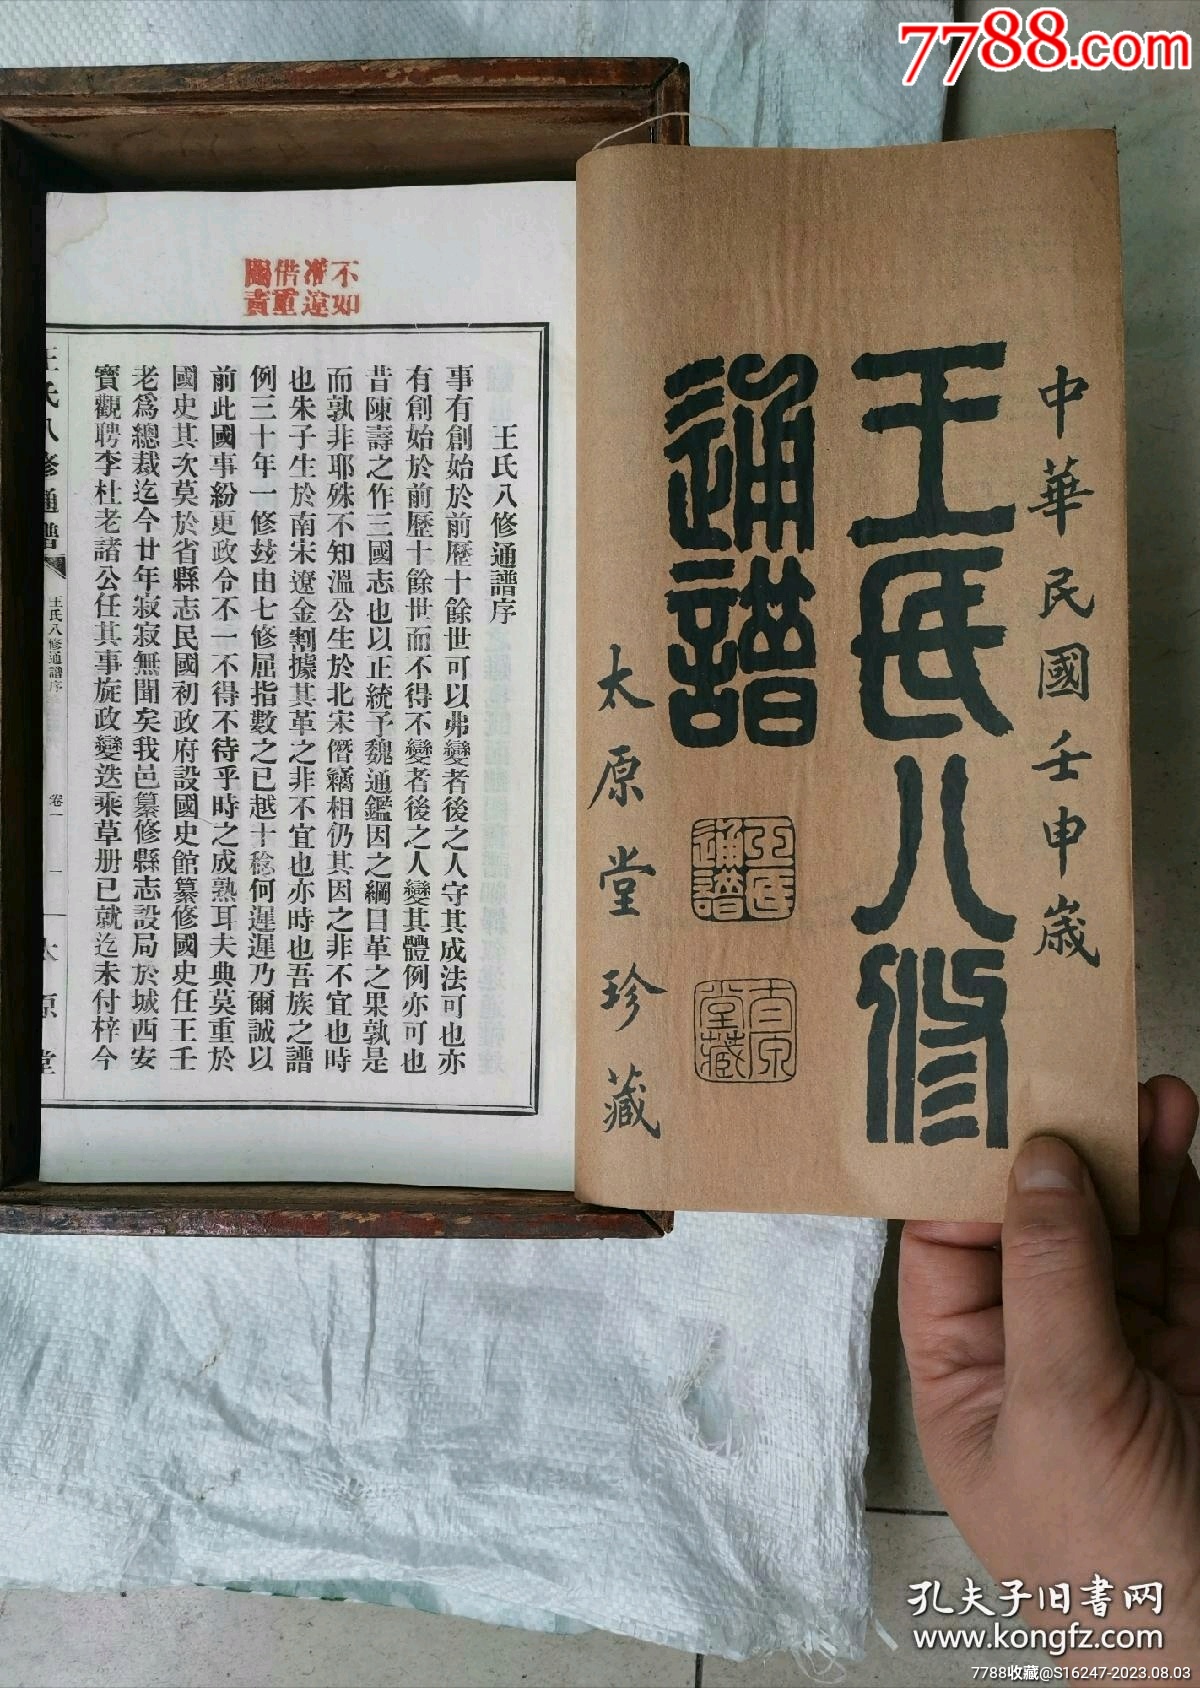 7788.com
中華民國壬申歲
王氏八修
通譜
太原堂珍藏
王氏
通譜
太原
堂藏
不如
準遠
借重
圖責
王氏八修通譜序
事有創始於前歷十餘世可以弗變者後之人守其成法可也亦
有創始於前歷十餘世而不得不變者後之人變其體例亦可也
昔陳壽之作三國志也以正統予魏通鑑因之綱目革之果孰是
而孰非耶殊不知溫公生於北宋僭竊相仍其因之非不宜也時
也朱子生於南宋遼金割據其革之非不宜也亦時也吾族之譜
例三十年一修玆由七修屈指數之已越十稔何遲遲乃爾誠以
前此國事紛更政令不一不得不待乎時之成熟耳夫典莫重於
國史其次莫於省縣志民國初政府設國史館纂修國史任王壬
老爲總裁迄今廿年寂寂無聞矣我邑纂修縣志設局於城西安
寶觀聘李杜老諸公任其事旋政變迭乘草册已就迄未付梓今
王氏八修通譜
王氏八修通譜序
卷一
一
太原堂
孔夫子旧書网
www.kongfz.com
7788收藏@S16247-2023.08.03